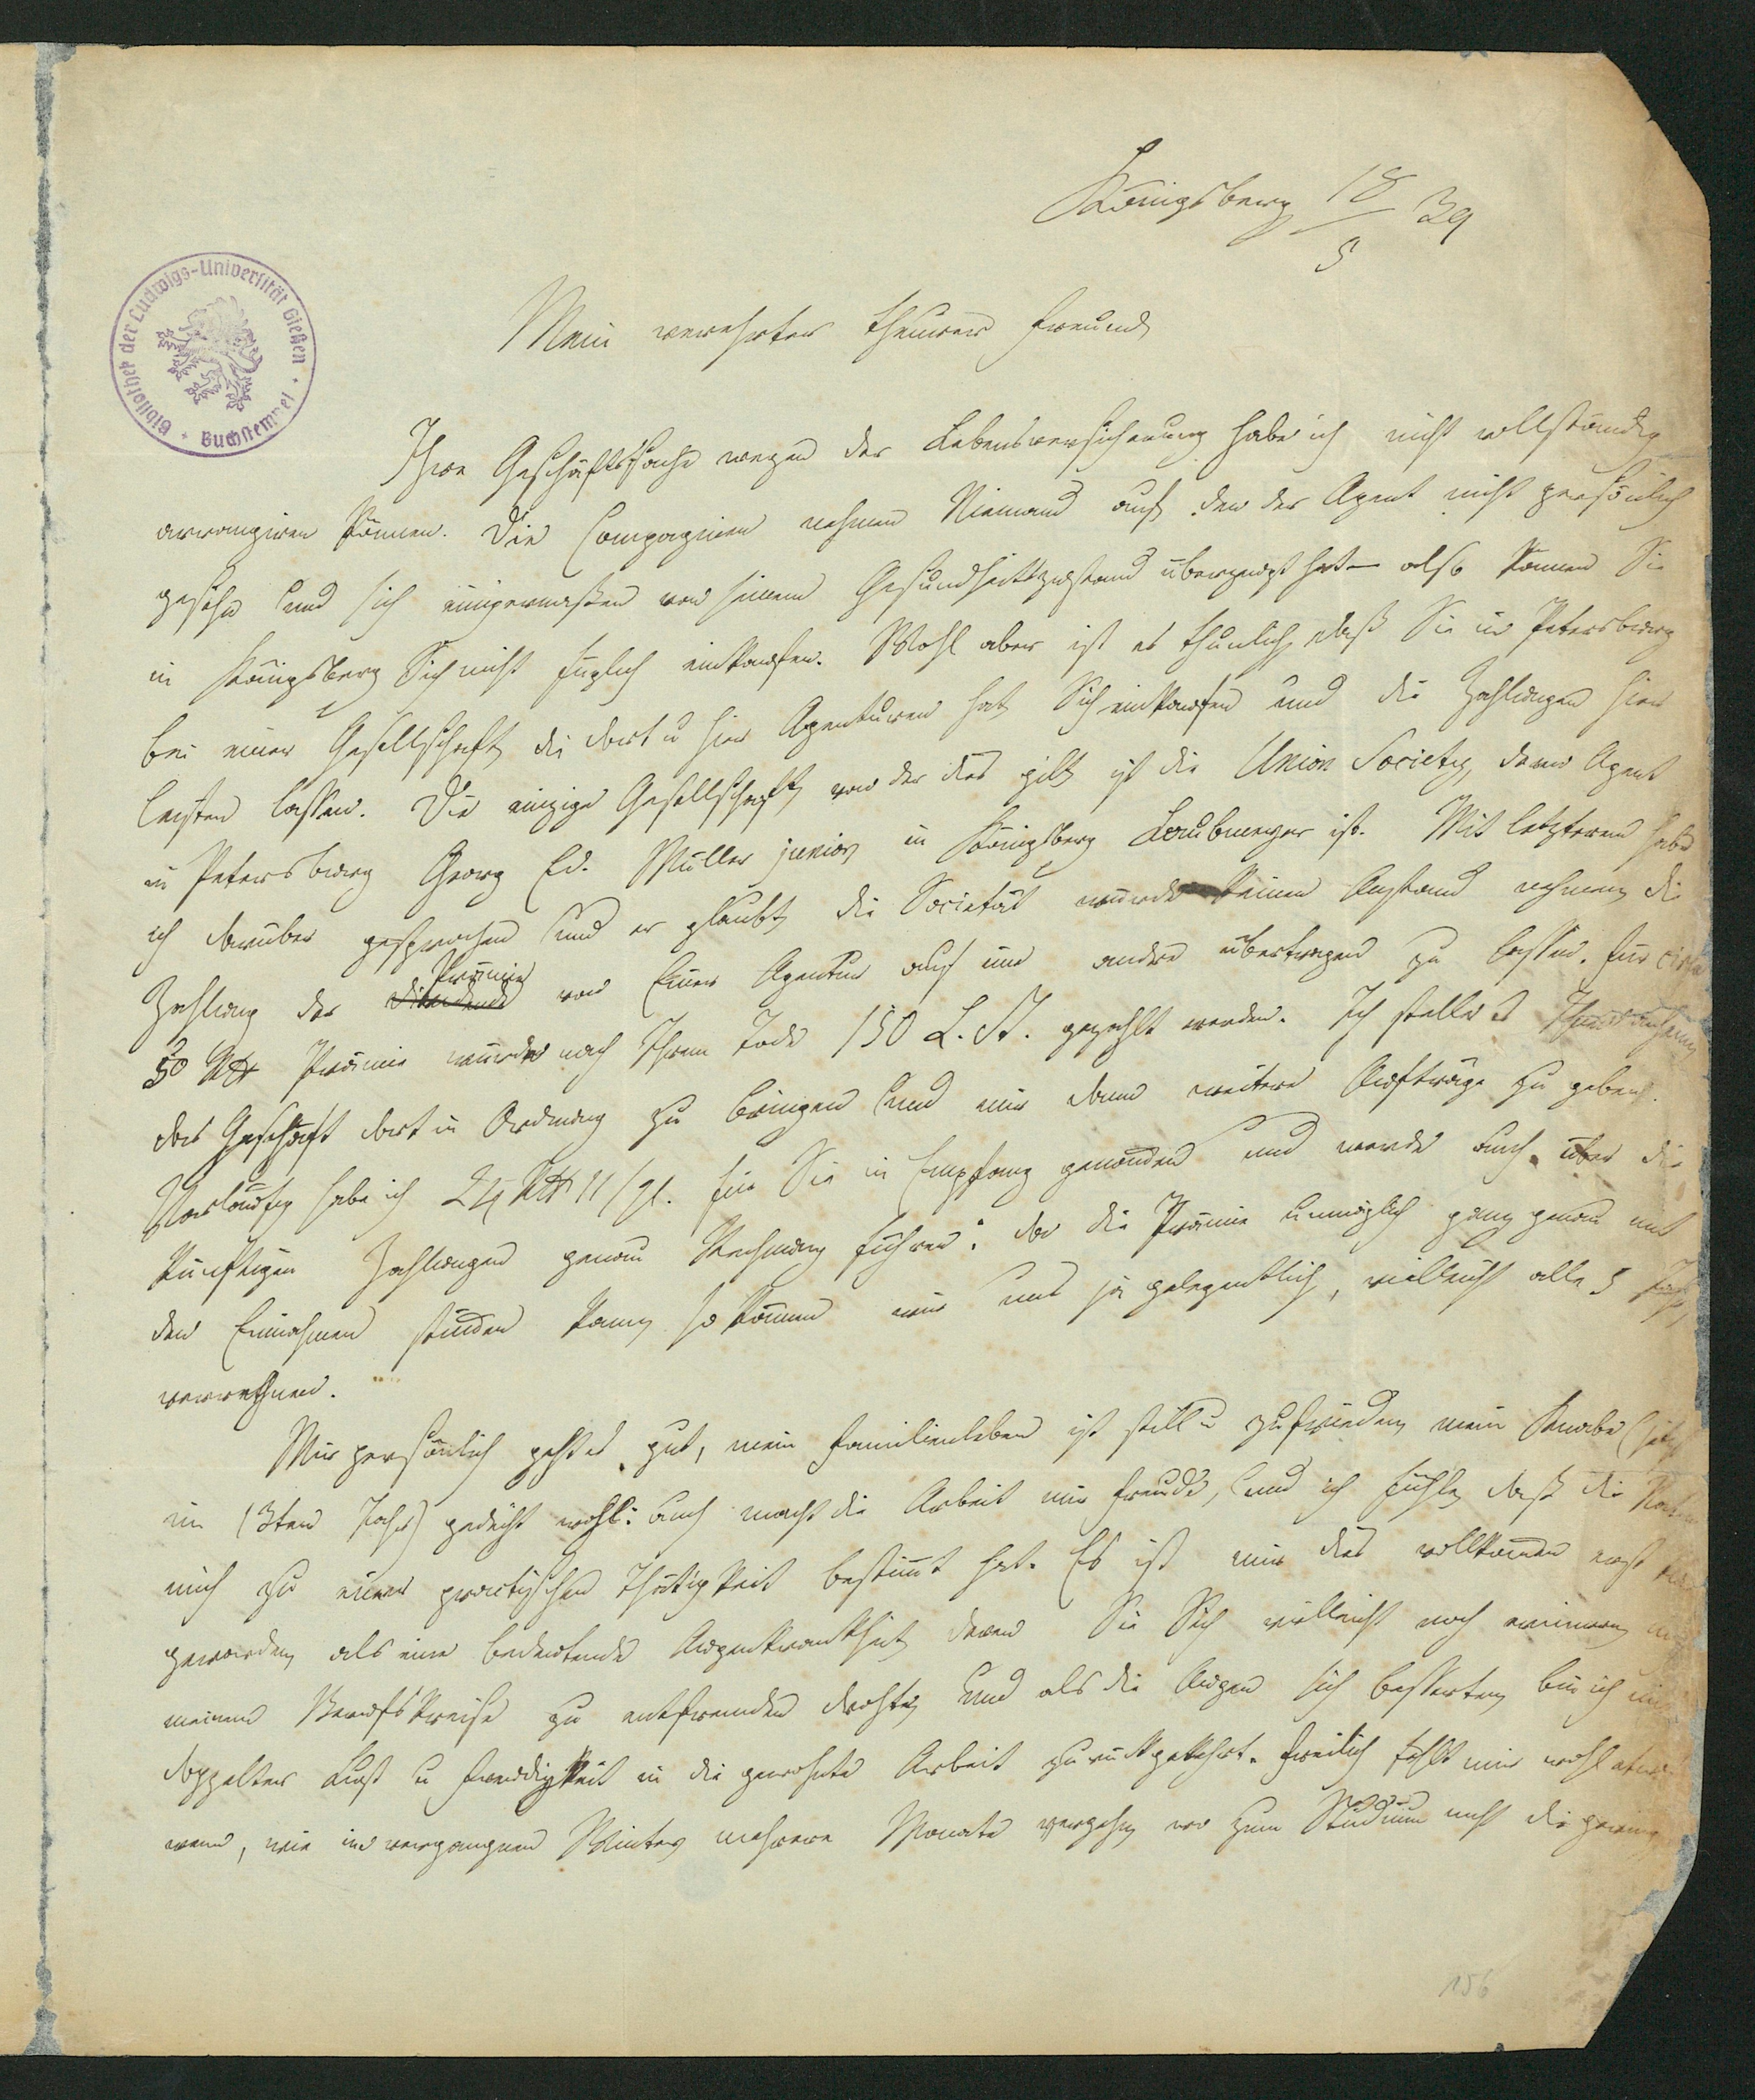 Königsberg 18/5 39
Bibliothek der Ludwigs-Universität Gießen · Buchstempel ·
Mein verehrter theurer Freund
Ihre Geschäftssache wegen der Lebensversicherung habe ich nicht vollständig
arrangiren können. Die Compagnien nehmen Niemand auf, den der Agent nicht persönlich
gesehn und sich einigermaßen von seinem Gesundheitszustand überzeugt hat – also können Sie
in Königsberg Sich nicht füglich einkaufen. Wohl aber ist es thunlich, daß Sie in Petersburg
bei einer Gesellschaft, die dort u hier Agenturen hat, Sich einkaufen und die Zahlungen hier
leisten lassen. Die einzige Gesellschaft, von der dies gilt, ist die Union Society, deren Agent
in Petersburg Georg Ed. Müller junior, in Königsberg Laubmeyer ist. Mit letzterem habe
ich darüber gesprochen und er glaubt, die Societät würde keinen Anstand nehmen, die
Zahlung der Prämie von Einer Agentur auf eine andre übertragen zu lassen. Für circa
50 Rtlr Prämie würden nach Ihrem Tode 150 L. St. gezahlt werden. Ich stelle es Ihnen anheim
das Geschäft dort in Ordnung zu bringen und mir dann weitere Aufträge zu geben.
Vorläufig habe ich 24 Rtlr 11 sgl. für Sie in Empfang genommen und werde auch über die
künftigen Zahlungen genau Rechnung führen: da die Prämie unmöglich ganz genau mit
den Einnahmen stimmen kann, so können wir uns ja gelegentlich, vielleicht alle 5 Jahre,
verrechnen.
Mir persönlich geht es gut, mein Familienleben ist still u zufrieden, mein Knabe (jetzt
im 13ten Jahr) gedeiht wohl: auch macht die Arbeit mir Freude, und ich fühle, daß die Natur
mich zu einer practischen Thätigkeit bestimmt hat. Es ist mir dies vollkommen erst
geworden, als eine bedeutende Augenkrankheit, deren Sie Sich vielleicht noch erinnern,
meinem Berufskreise zu entfremden drohte, und als die Augen sich besserten, bin ich mit
doppelter Lust u Freudigkeit in die gewohnte Arbeit zurückgekehrt. Freilich fehlt mir wohl etwas
wenn, wie im vergangnen Winter, mehrere Monate vergehn, wo zum Studium nicht die
156